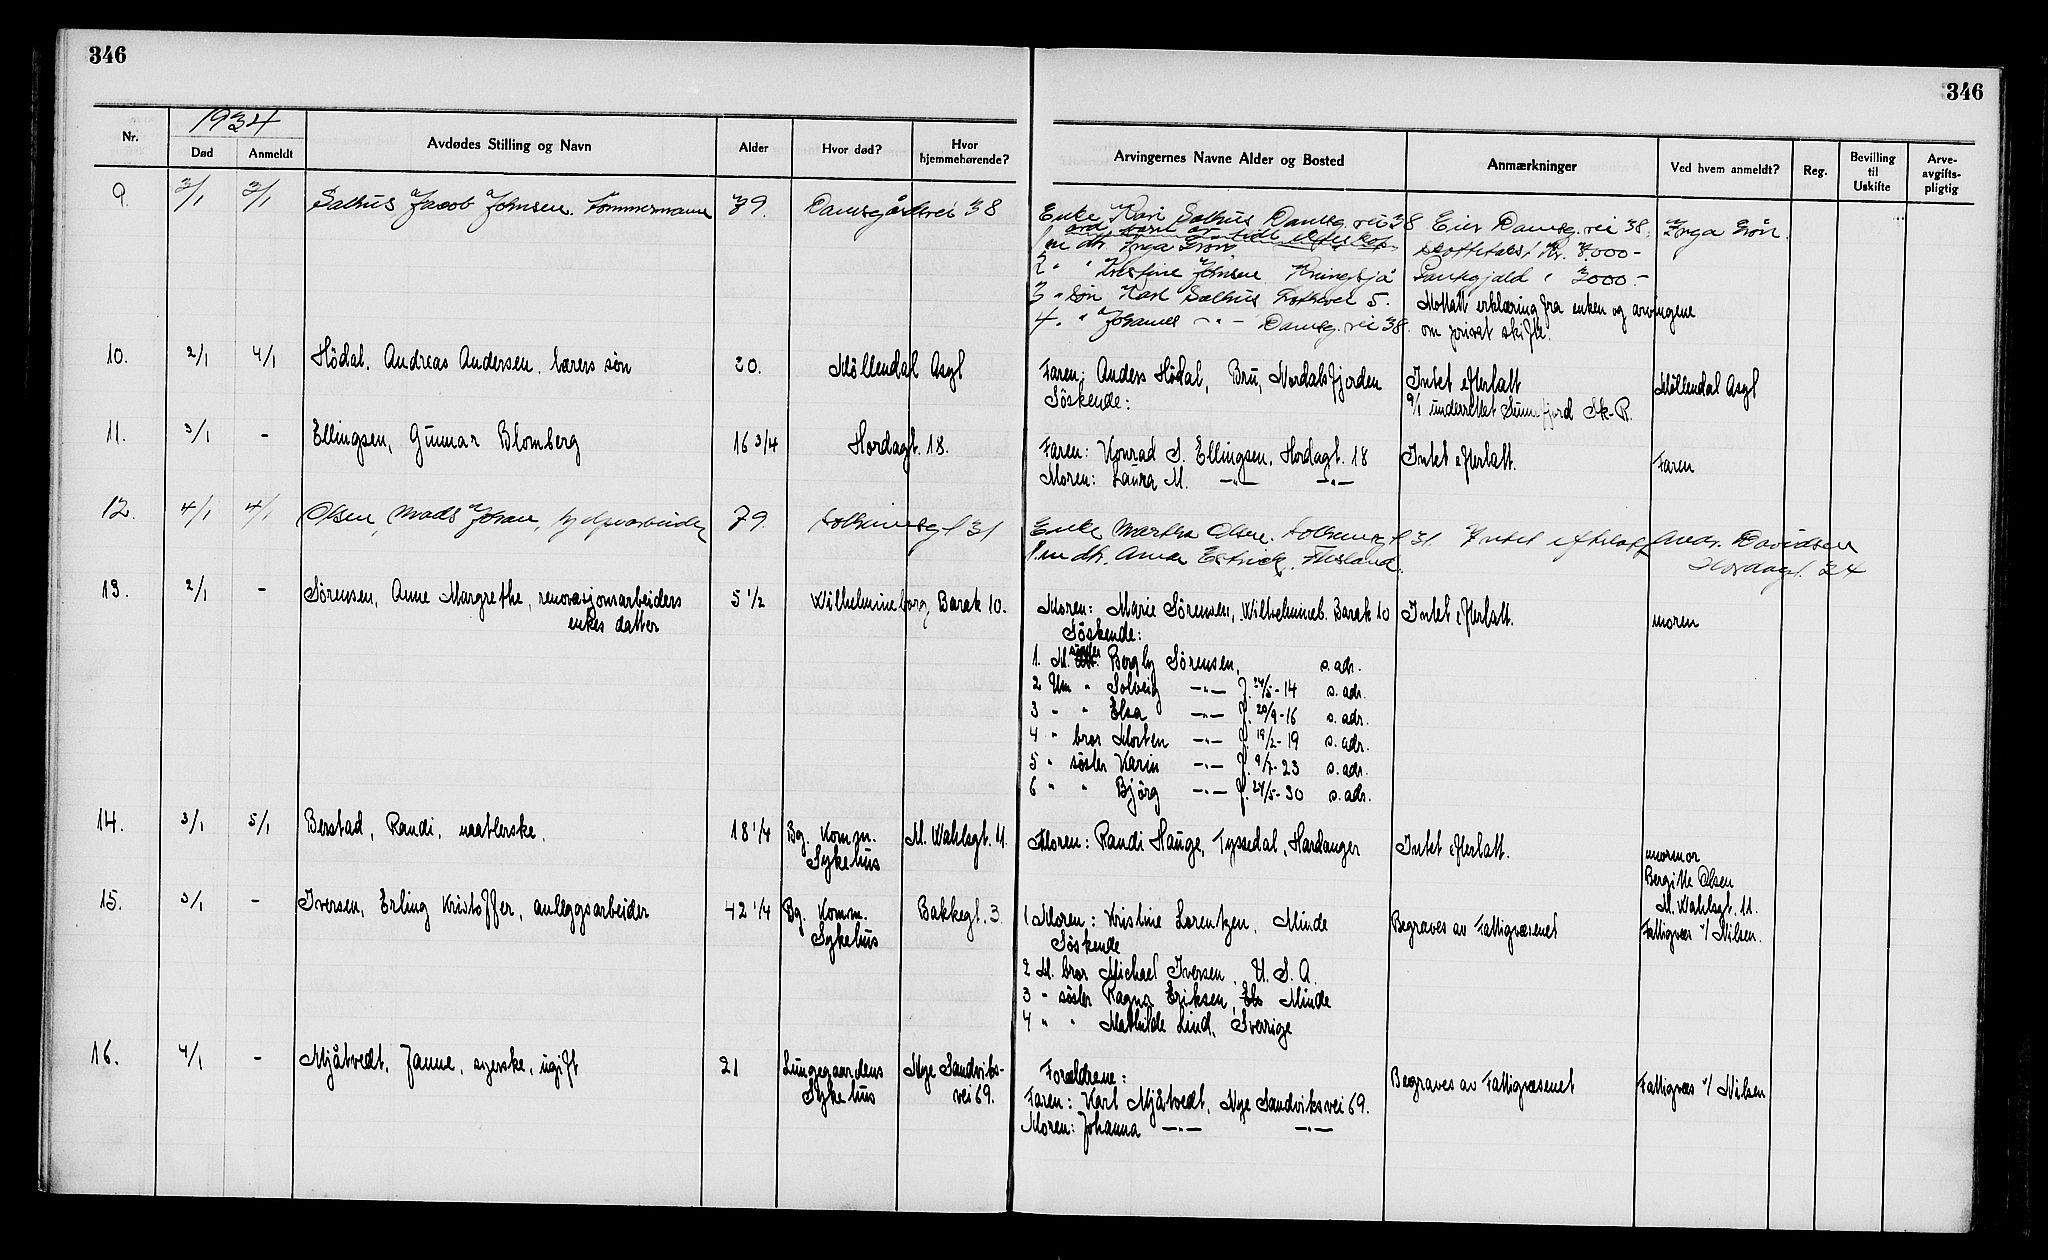 346
346
1934
Nr.
Død
Anmeldt
Avdødes Stilling og Navn
Alder
Hvor død?
Hvor hjemmehørende?
Arvingernes Navne Alder og Bosted
Anmærkninger
Ved hvem anmeldt?
Reg.
Bevilling til Uskifte
Arve-avgifts-pligtig
9. 2/1 3/1 Salhus Jacob Johnsen. Tømmermann 79. Damsgårdsvei 38
Enke Kari Salhus Damsg. vei 38
1 m dtr. Inga Grön
2 " " Kristine Johnsen
3 " Sön Karl Salhus 5.
4. " Johannes -"- Damsg. vei 38.
Eier Damsg. vei 38.
skattetakst Kr. 8.000-
Pantegjæld " 3000.-
Mottatt erklæring fra enken og arvingene
om privat skifte.
Inga Grön.
10. 2/1 4/1 Hödal, Andreas Andersen, lærers søn 20. Møllendal Asyl
Faren: Anders Hödal, Bru, Nordalsfjorden
Söskende:
Intet efterlatt
9/1 underrettet Sunnfjord Sk-R.
Møllendal Asyl
11. 3/1 - Ellingsen, Gunnar Blomberg 16 3/4 Hordagt. 18.
Faren: Konrad S. Ellingsen, Hordagt. 18
Moren: Laura M. -"- -"-
Intet efterlatt.
Faren
12. 4/1 4/1 Olsen, Mads Johan, 79. Solheimsgt 31
Enke Martha Olsen. Solheimsgt 31.
1 m dtr. Anna Flesland.
Intet efterlatt
Andr. Davidsen
Hordagt. 24
13. 2/1 - Sørensen, Anne Margrethe, renovasjonsarbeiders
enkes datter
5 1/2 Wilhelmineborg, Barak 10.
Moren: Marie Sörensen, Wilhelmineb. Barak 10
Söskende:
1. M. søster Bergly Sörensen, s. adr.
2 Um " Solveig -"- f. 24/5-14 s. adr.
3 " " Elsa -"- f. 20/9-16 s. adr.
4 " bror Morten -"- f. 19/2-19 s. adr.
5 " søster Karin -"- f. 9/7-23 s. adr.
6 " " Björg -"- f. 24/5-30 s. adr.
Intet efterlatt.
moren
14. 3/1 5/1 Berstad, Randi, naatlerske. 18 1/4 Bg. Komm.
Sykehus
M. Wahlsgt. 11.
Moren: Randi Hauge, Tyssedal, Hardanger
Intet efterlatt.
mormor
Bergitte Olsen
M. Wahlsgt. 11.
15. 3/1 - Iversen, Erling Kristoffer, anleggsarbeider 42 1/4 Bg. Komm.
Sykehus
Bakkegt. 3
1 Moren: Kristine Lorentzen, Minde
Söskende
2 M. bror Michael Iversen, U.S.A.
3 " søster Ragna Eriksen, Minde
4 " " Mathilde Lind, Sverrige
Begraves av Fattigvæsenet
Fattigvæs v/ Nilsen.
16. 4/1 - Mjåtvedt, Janne, syerske, ugift 21 Lungegaardens
Sykehus
Nye Sandviks-
vei 69.
Forældrene:
Faren: Karl Mjåtvedt, Nye Sandviksvei 69.
Moren: Johanna -"- -"-
Begraves av Fattigvæsenet
Fattigvæs v/ Nilsen